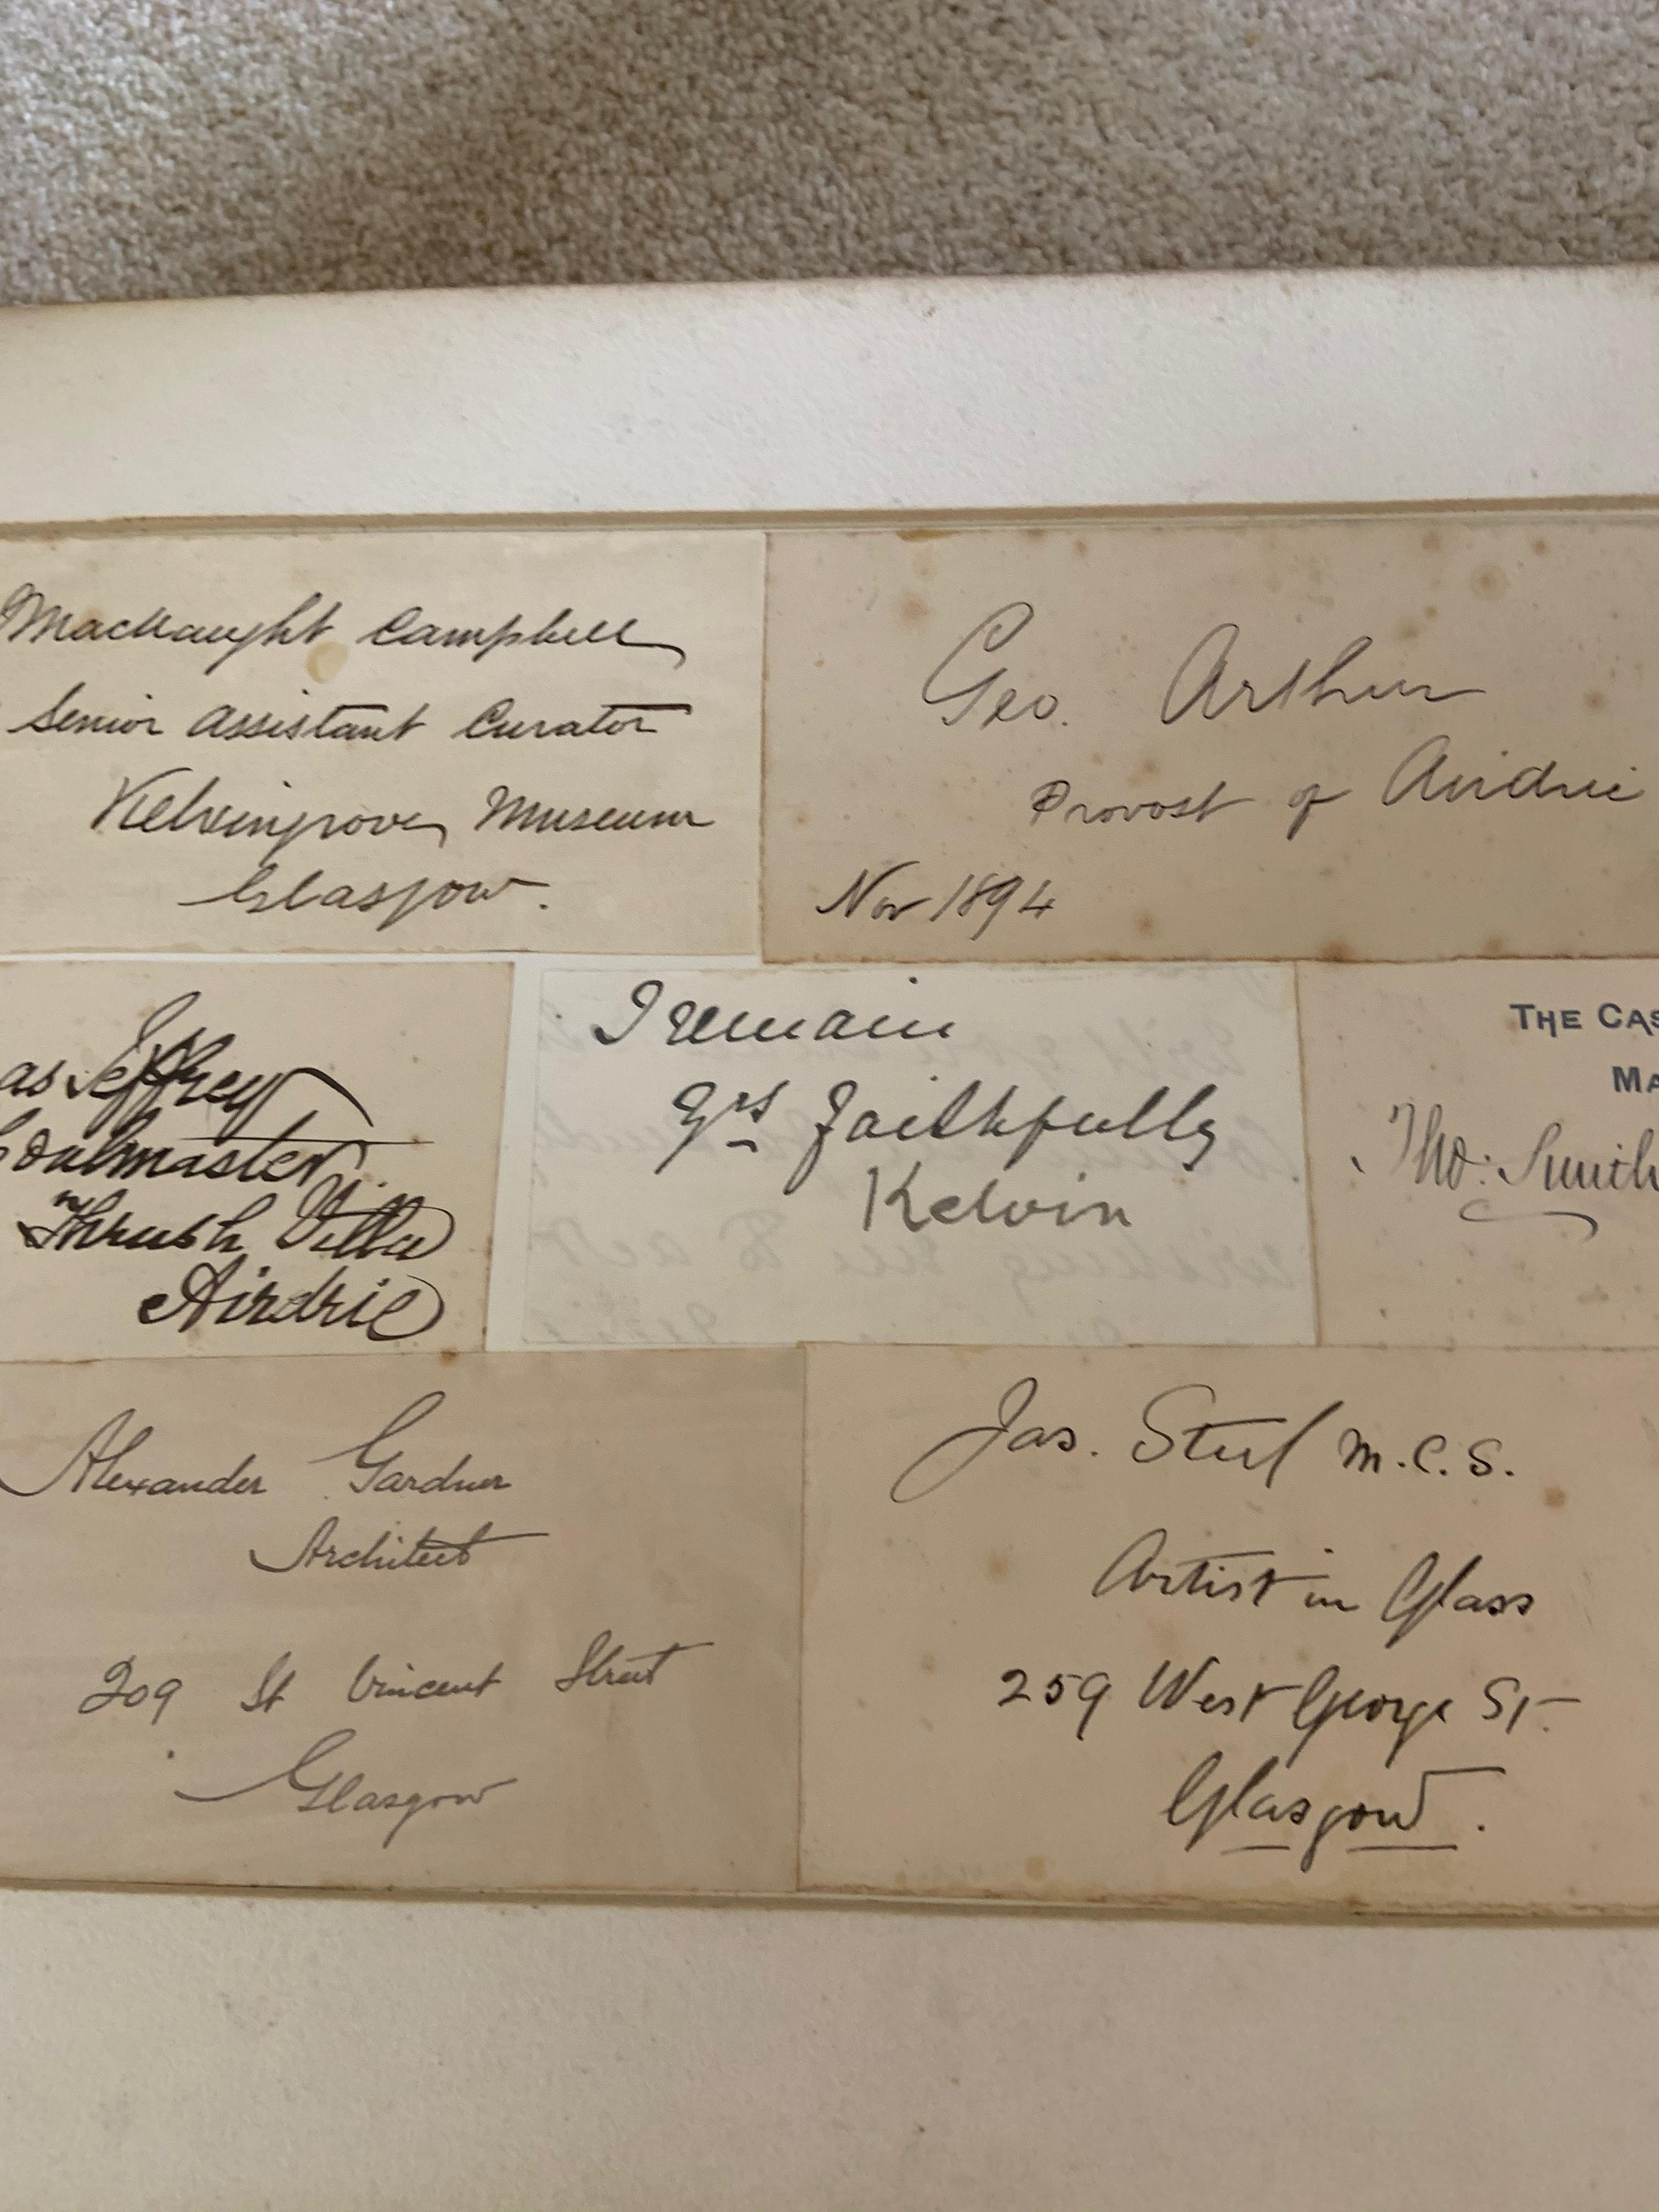 MacNaught Campbell
Senior Assistant Curator
Kelvingrove Museum
Glasgow.
Geo. Arthur
Provost of Airdrie
Nov 1894
as Jeffrey
Thrush Villa
Airdrie
I remain
Yrs faithfully
Kelvin
THE CAS
MA
Tho: Smith
Alexander Gardner
Architect
209 St Vincent Street
Glasgow
Jas. Steel M.C.S.
Artist in Glass
259 West George St.
Glasgow.